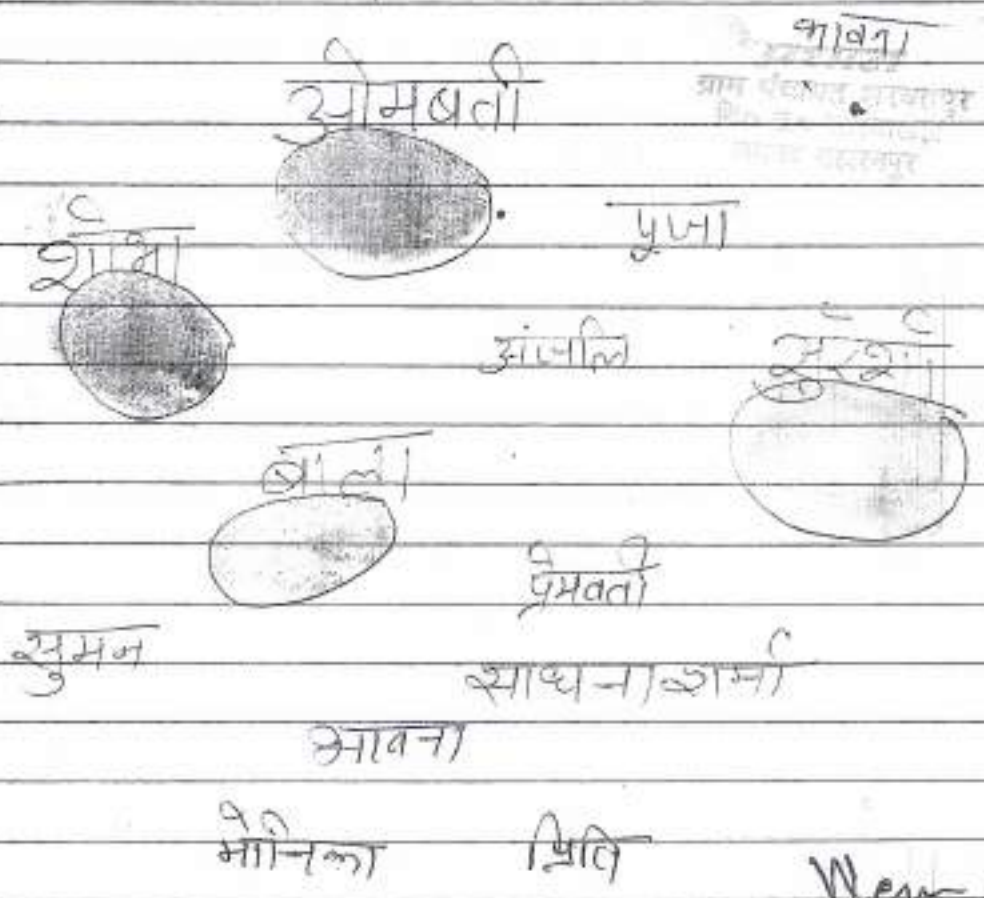 भावना
ग्राम पंचायत
ओमबती
पूजा
शोभा
अंजलि
सुरेशो
बाला
प्रेमवती
सुमन
साधना शर्मा
भावना
मोनिका
प्रिति